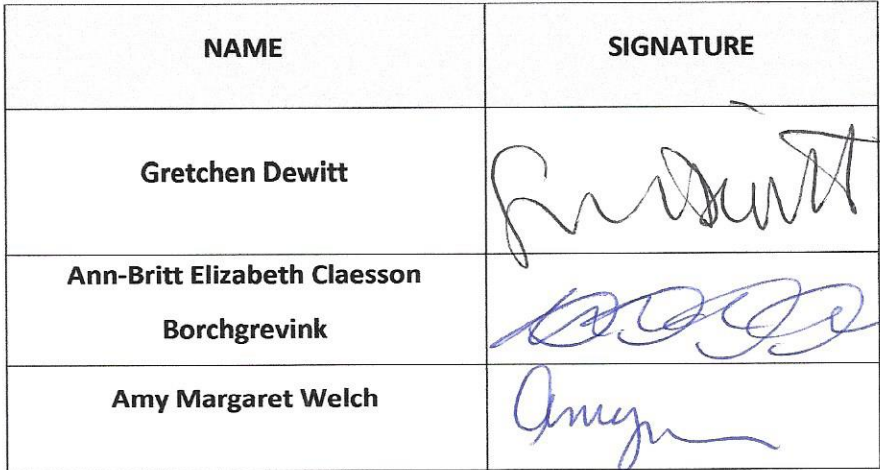 NAME SIGNATURE
Gretchen Dewitt
Ann-Britt Elizabeth Claesson
Borchgrevink
Amy Margaret Welch